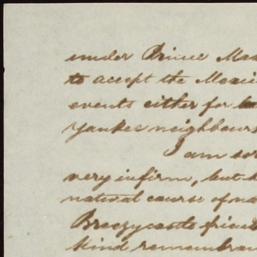 under Prince Max
to accept the Mexic
events either for
Yankee neighbours
I am sor
very infirm, but h
natural course of na
Breezycastle friend
kind remembran